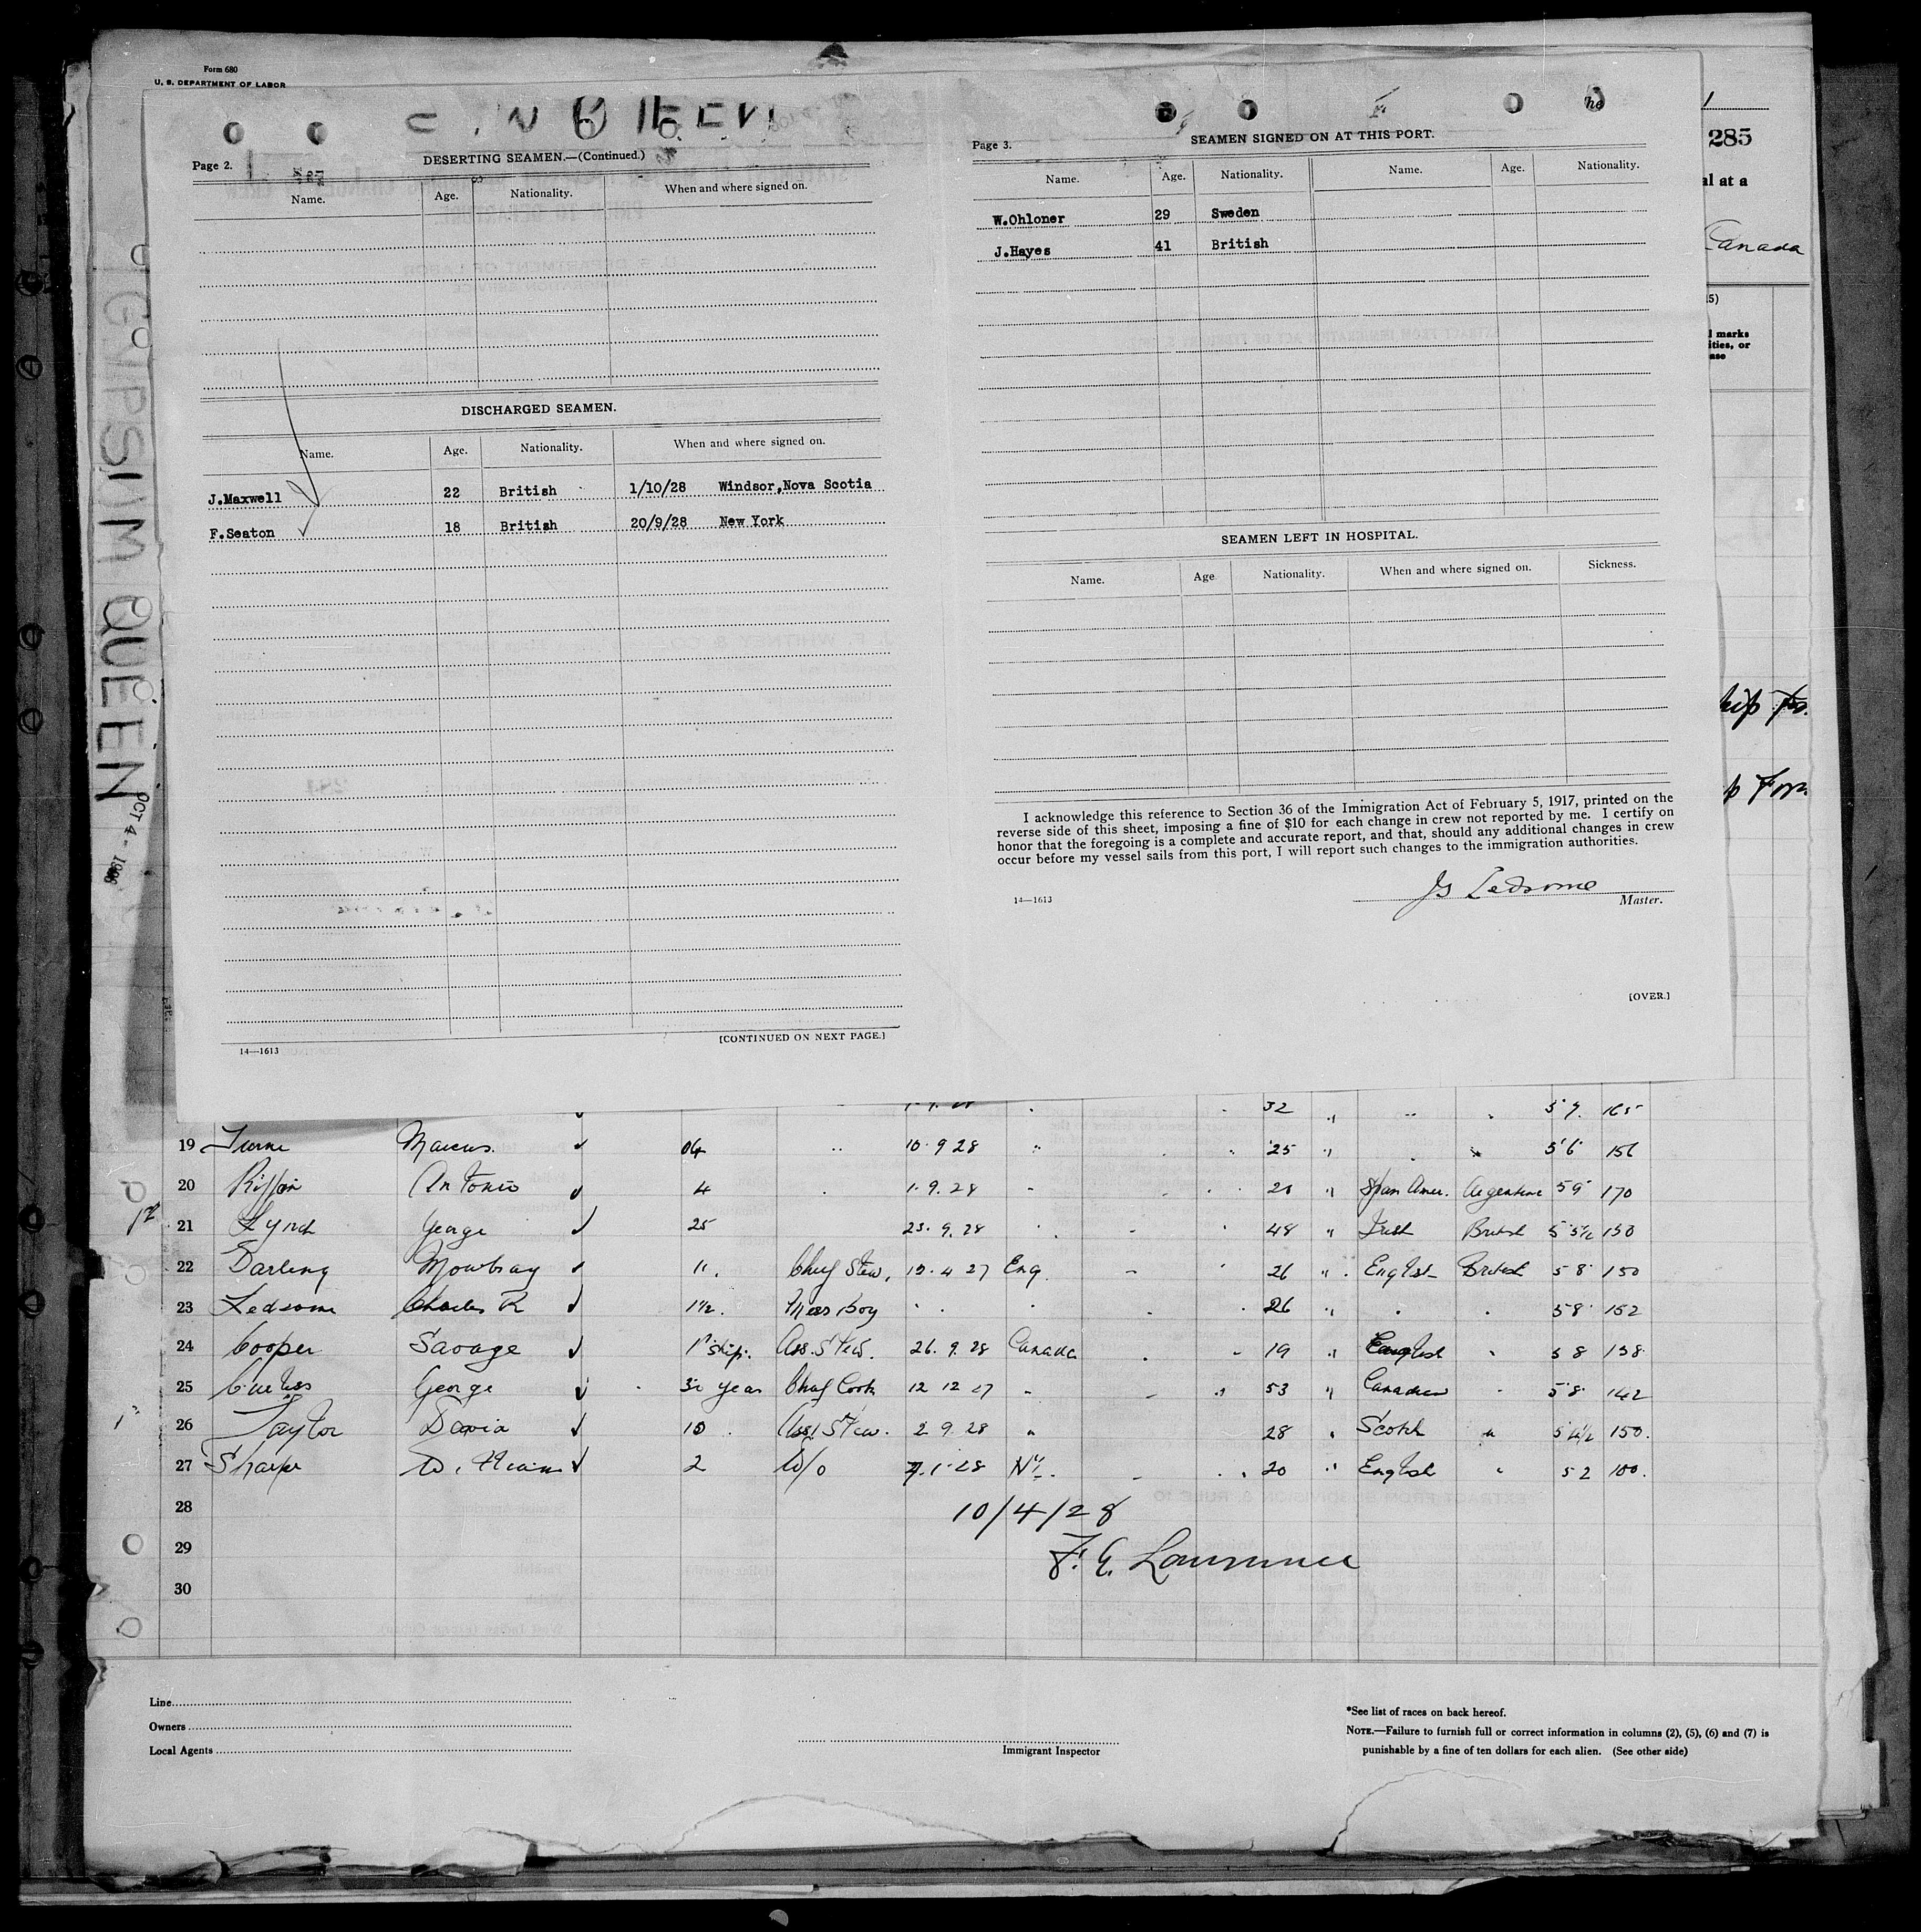 Form 680
U. S. DEPARTMENT OF LABOR
Page 2.
DESERTING SEAMEN.—(Continued.)
Name. Age. Nationality. When and where signed on.
DISCHARGED SEAMEN.
Name. Age. Nationality. When and where signed on.
J.Maxwell 22 British 1/10/28 Windsor,Nova Scotia
F.Seaton 18 British 20/9/28 New York
14—1613
[CONTINUED ON NEXT PAGE.]
Page 3.
SEAMEN SIGNED ON AT THIS PORT.
Name. Age. Nationality. Name. Age. Nationality.
W.Ohloner 29 Sweden
J.Hayes 41 British
SEAMEN LEFT IN HOSPITAL.
Name. Age Nationality. When and where signed on. Sickness.
I acknowledge this reference to Section 36 of the Immigration Act of February 5, 1917, printed on the
reverse side of this sheet, imposing a fine of $10 for each change in crew not reported by me. I certify on
honor that the foregoing is a complete and accurate report, and that, should any additional changes in crew
occur before my vessel sails from this port, I will report such changes to the immigration authorities.
Js Ledsome
14—1613
Master.
[OVER.]
285
al at a
Canada
l marks
ities, or
ase
GYPSUM QUEEN
OCT 4 -
32 5 7. 165
19 Marcus. 10. 9 28 25 " 5 6 156
20 Antonio 4 1. 9. 28 " Span Amer. Argentine 5 9 170
21 Lynch George 25 23. 9. 28 48 " Irish British 5 5½ 150
22 Darling Mowbray 11. Chief Stew. 4 27 Eng. 26 " English British 5 8 150
23 Ledsome Charles R 1½. Mess Boy 26 " 5 8 152
24 Cooper Savage 1st ship. Ass. Stew. 26. 9. 28 Canada 19 " English 5 8 138
25 George 30 year Chief Cook 12 12 27 53 " Canadian 5 8 142
26 Taylor David 10 Asst Stew. 2 9. 28 " 28 Scotch " 150.
27 Sharpe 2 W/o 1. 28 N.Y. 20 " English " 5 2 100.
28
10/4/28
29
F. E. Lawrence
30
Line
Owners
Local Agents
Immigrant Inspector
*See list of races on back hereof.
NOTE.—Failure to furnish full or correct information in columns (2), (5), (6) and (7) is
punishable by a fine of ten dollars for each alien. (See other side)